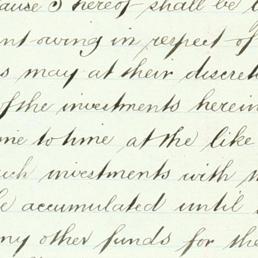 ause 5 hereof shall be
nt owing in respect of
s may at their discret
of the investments herein
me to time at the like
uch investments with
e accumulated until
ny other funds for the